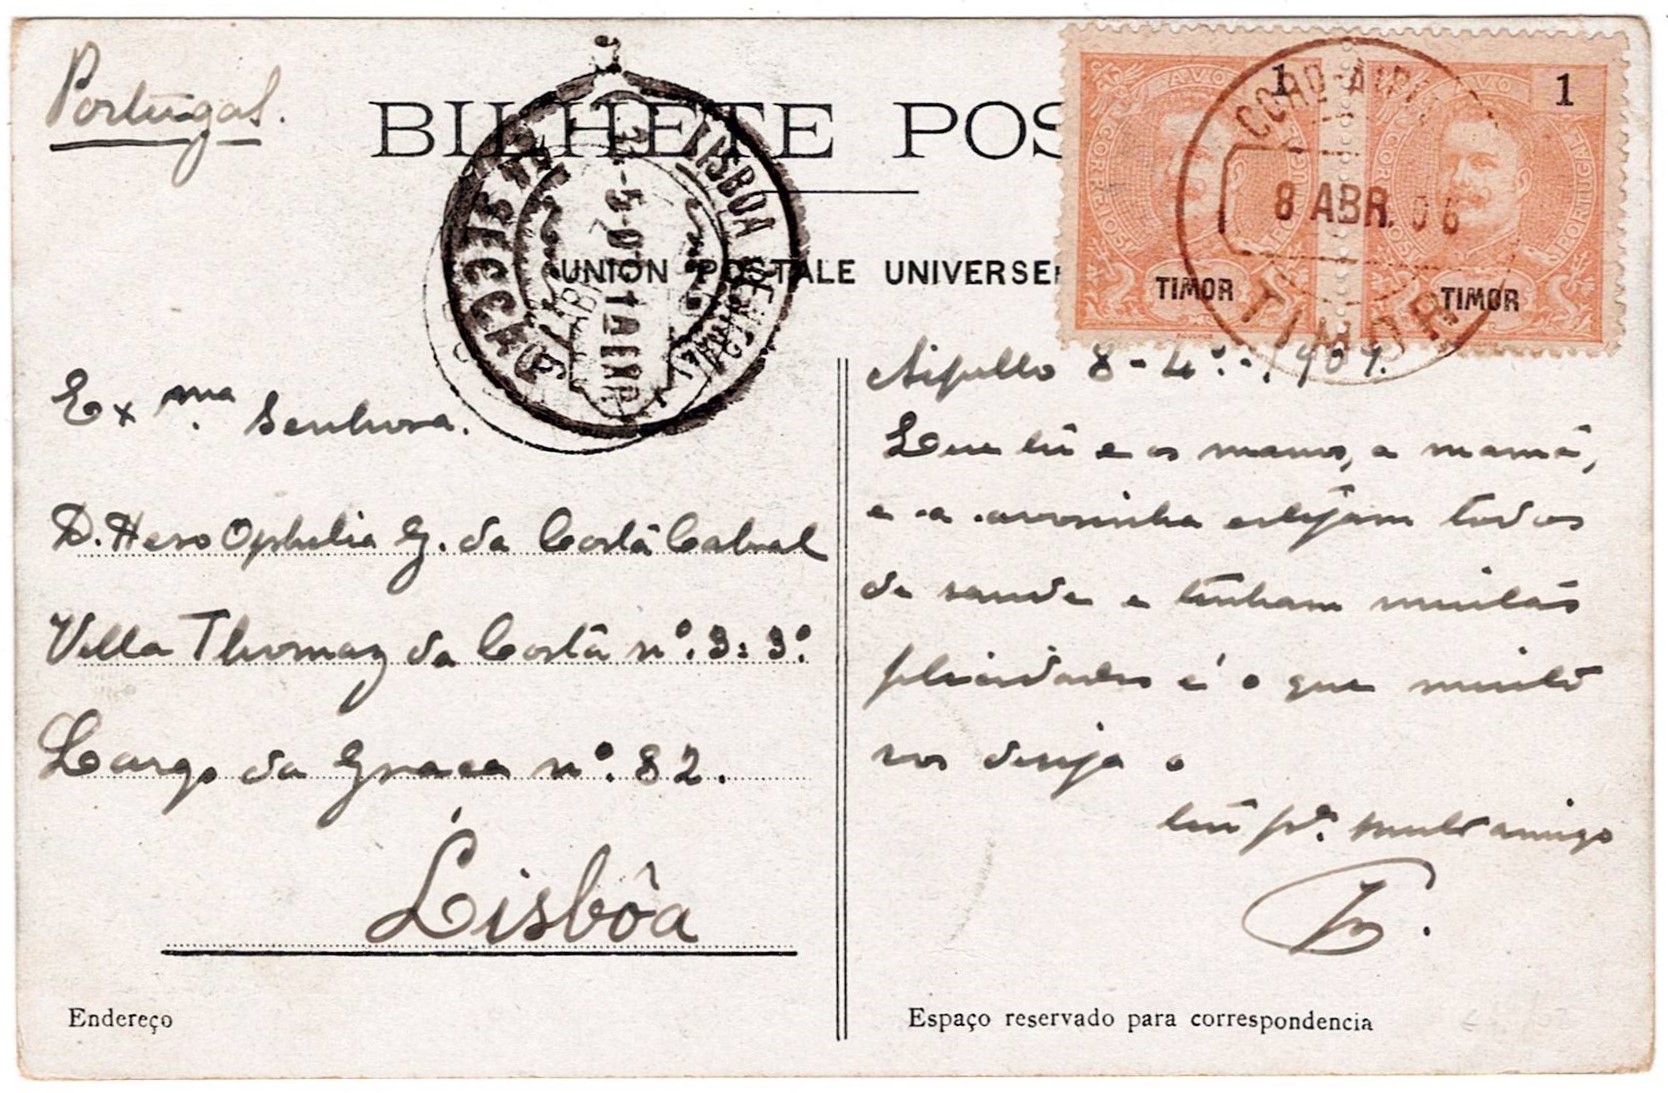 Portugal.
BILHETE POS
UNION POSTALE UNIVERSE
AVO 1
CORREIOS
TIMOR
AVO 1
CORREIOS
PORTUGAL
TIMOR
CORO-AIP
8 ABR. 06
TIMOR
LISBOA CENTRAL
1ª SECÇÃO
Aipello 8-4º-1909.
Que tu e os manos, a mamã,
e a avosinha estejam todos
de saude e tenham muitas
felicidades é o que muito
vos deseja o
teu pª. muito amigo
Ex ma. Senhora.
D. Hero Ophelia G. da Costa Cabral
Villa Thomaz da Costa nº. 3: 3º.
Largo da Graça nº. 82.
Lisbôa
Endereço
Espaço reservado para correspondencia